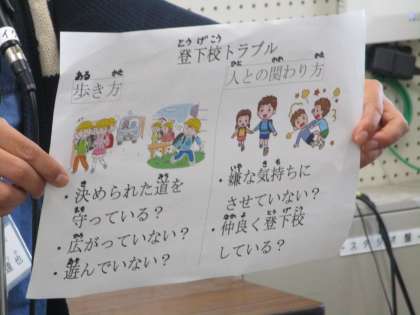 とうげこう
登下校トラブル
あるかた
歩き方
ひとかかかた
人との関わり方
・決められた道を
守っている?
・広がっていない?
・遊んでいない?
・嫌な気持ちに
させていない?
・仲良く登下校
している?